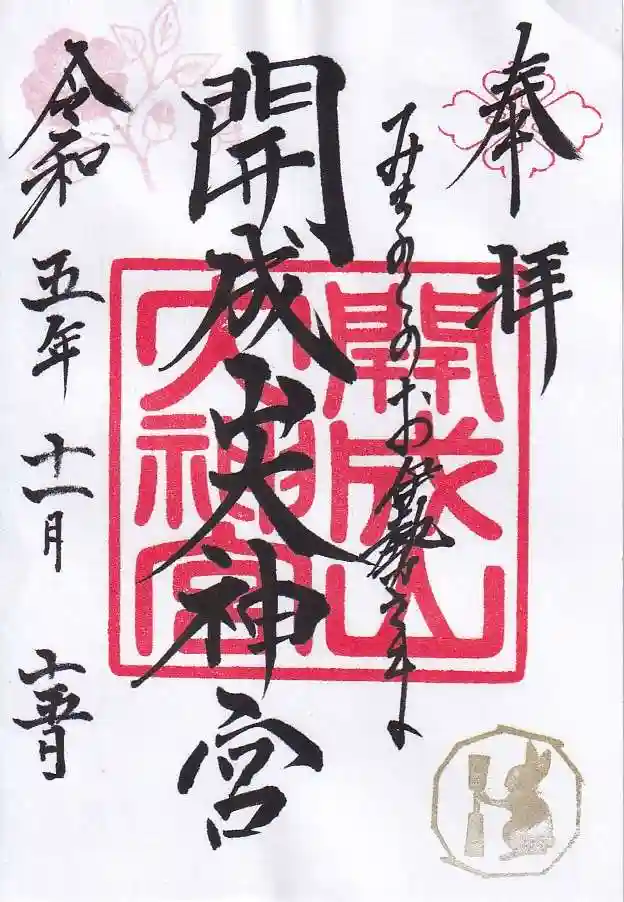 奉拝
みちのくのお伊勢さま
開成山大神宮
令和五年十一月十五日
開成山
大神宮